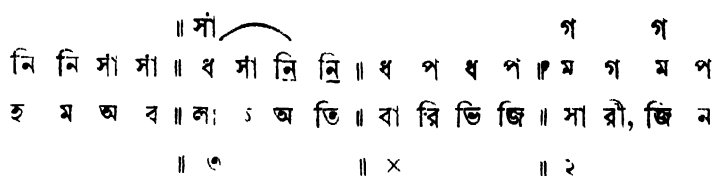 ॥ র্সা গ গ
নি নি র্সা র্সা ॥ ধ র্সা নি নি ॥ ধ প ধ প ॥ ম গ ম প
হ ম অ ব ॥ লা ऽ অ তি ॥ বা রি ভি জি ॥ সা রী, জি ন
॥ ৩ ॥ × ॥ ২